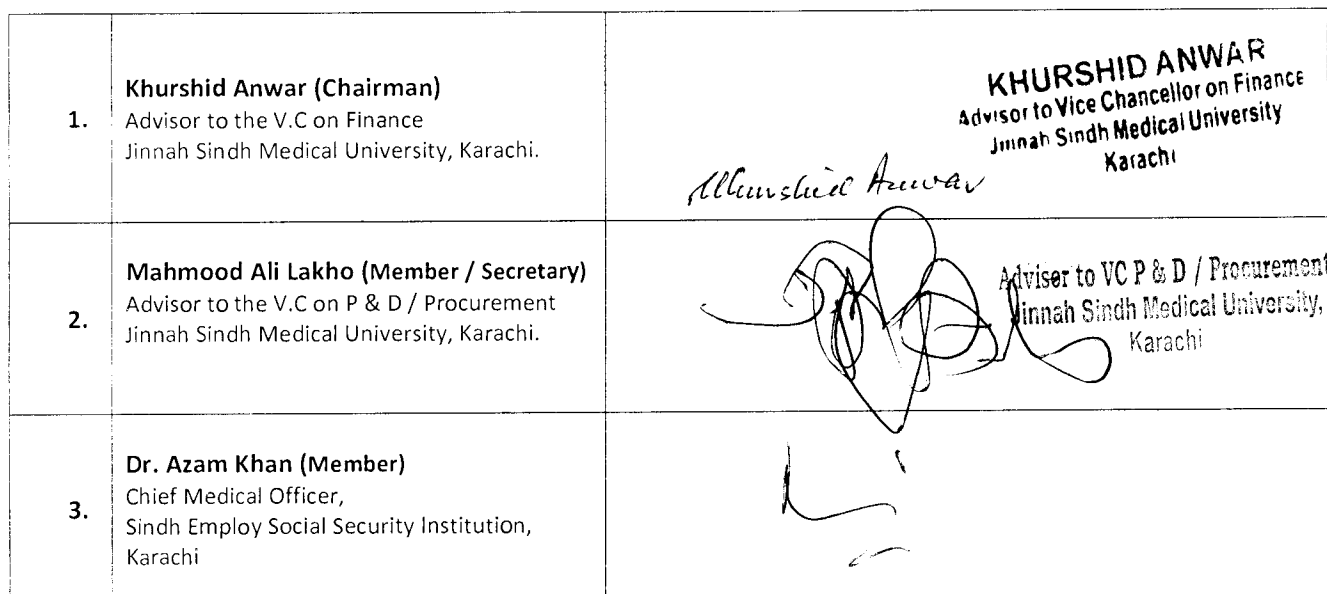 1.
Khurshid Anwar (Chairman)
Advisor to the V.C on Finance
Jinnah Sindh Medical University, Karachi.
KHURSHID ANWAR
Advisor to Vice Chancellor on Finance
Jinnah Sindh Medical University
Karachi
Khurshid Anwar
2.
Mahmood Ali Lakho (Member / Secretary)
Advisor to the V.C on P & D / Procurement
Jinnah Sindh Medical University, Karachi.
Adviser to VC P & D / Procurement
Jinnah Sindh Medical University,
Karachi
3.
Dr. Azam Khan (Member)
Chief Medical Officer,
Sindh Employ Social Security Institution,
Karachi